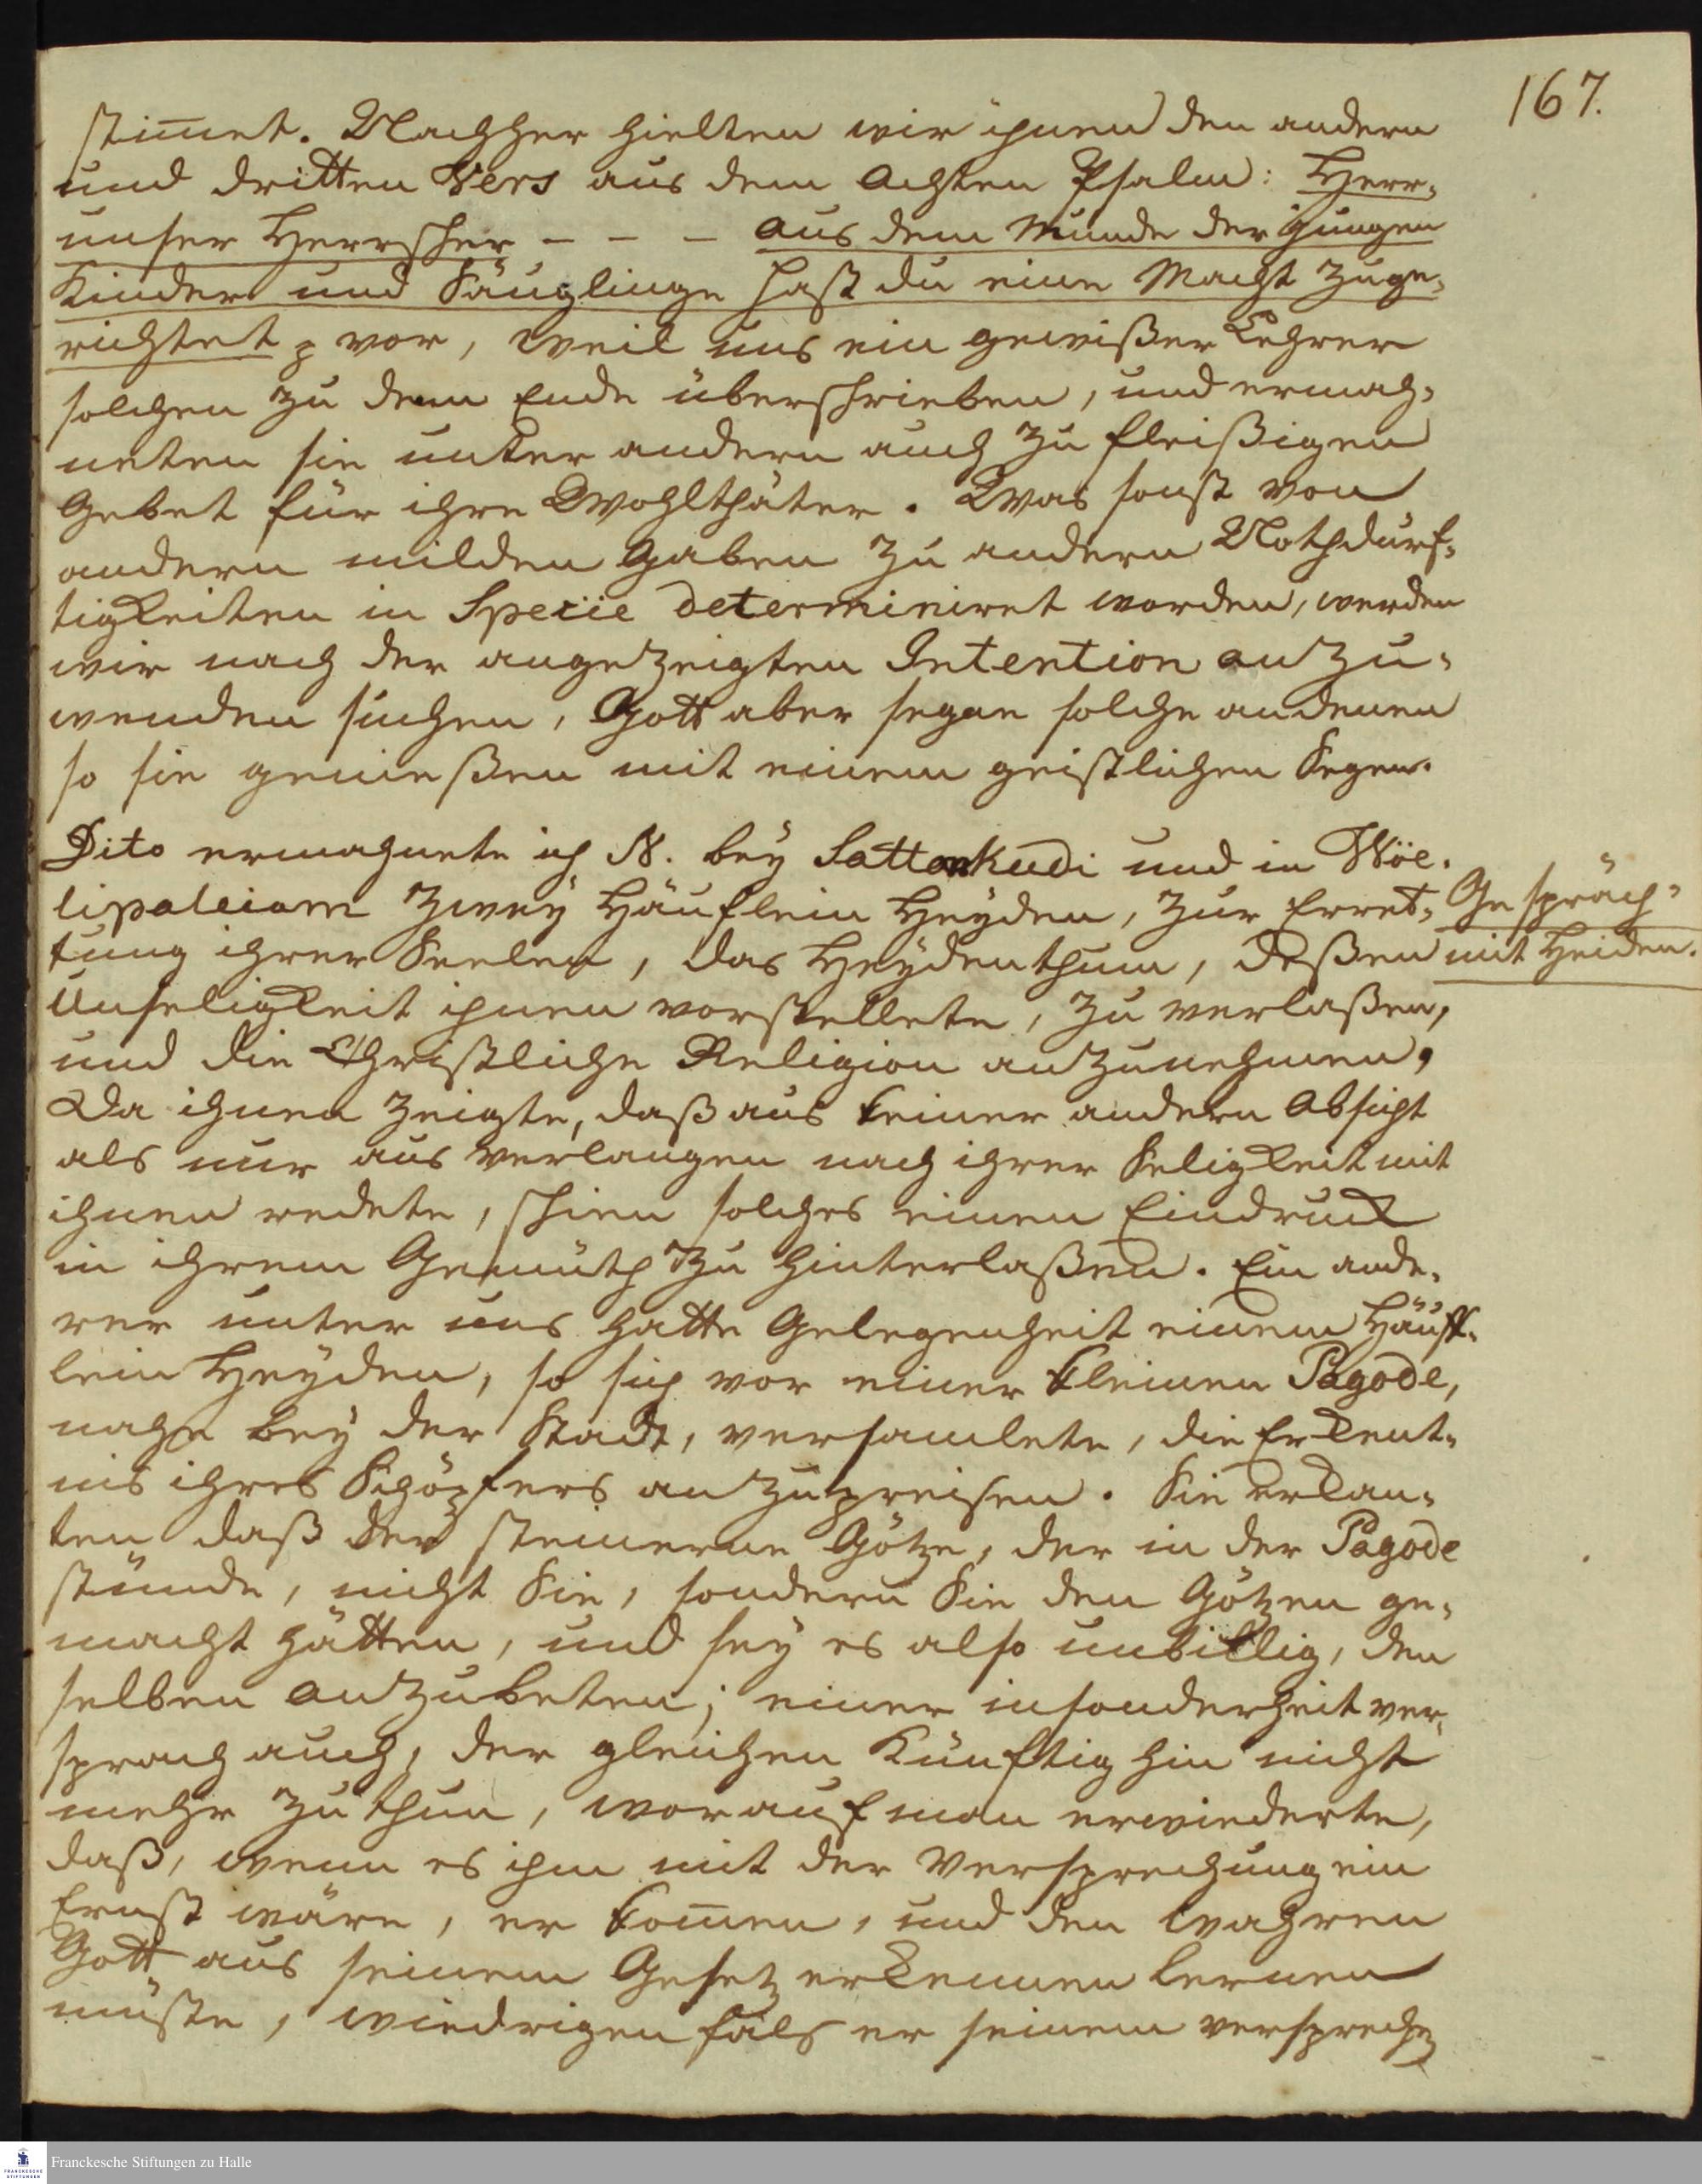 167.
stim̅et. Nachher hielten wir ihnen den andern
und dritten Vers aus dem achten Psalm: Herr,
unser Herrscher, – – – aus dem Munde der jungen
Kinder und Säuglinge hast du eine Macht zuge-
richtet p vor, weil uns ein gewißer Lehrer
solchen zu dem Ende überschrieben, und ermah-
neten sie unter andern auch zu fleißigen
Gebet für ihre Wohlthäter. Was sonst von
andern milden Gaben zu andern Nothdürf-
tigkeiten in Specie determiniret worden, werden
wir nach der angezeigten Intention anzu-
wenden suchen, Gott aber segne solche an denen
so sie genießen mit einem geistlichen Segen.
Dito ermahnete ich N. bey Sattankudi und in Wöe-
lipaleiam zwey Häuflein Heyden, zur Erret-
tung ihrer Seelen, das Heydenthum, deßen
Unseligkeit ihnen vorstellete, zu verlaßen,
und die Christliche Religion anzunehmen,
Da ihnen zeigte, daß aus keiner andern Absicht
als nur aus Verlangen nach ihrer Seligkeit mit
ihnen redete, schien solches einen Eindruck
in ihrem Gemüth zu hinterlaßen. Ein ande-
rer unter uns hatte Gelegenheit einem Häuff-
lein Heyden, so sich vor einer kleinen Pagode,
nahe bey der Stadt, versamlete, die Erkent-
nis ihres Schöpfers anzupreisen. Sie erkan-
ten daß der steinerne Götze, der in der Pagode
stünde, nicht Sie, sondern Sie den Götzen ge-
macht hätten, und sey es also unbillig, den
selben anzubeten; einer insonderheit ver-
sprach auch, der gleichen künftig hin nicht
mehr zu thun, worauf man erwiederte,
daß, wenn es ihm mit der Versprechung ein
Ernst wäre, er kom̅en, und den wahren
Gott aus seinem Gesetz erkennen lernen
müste, wiedrigenfals er seinem versprechen
Gespräch
mit Heiden.
Franckesche Stiftungen zu Halle